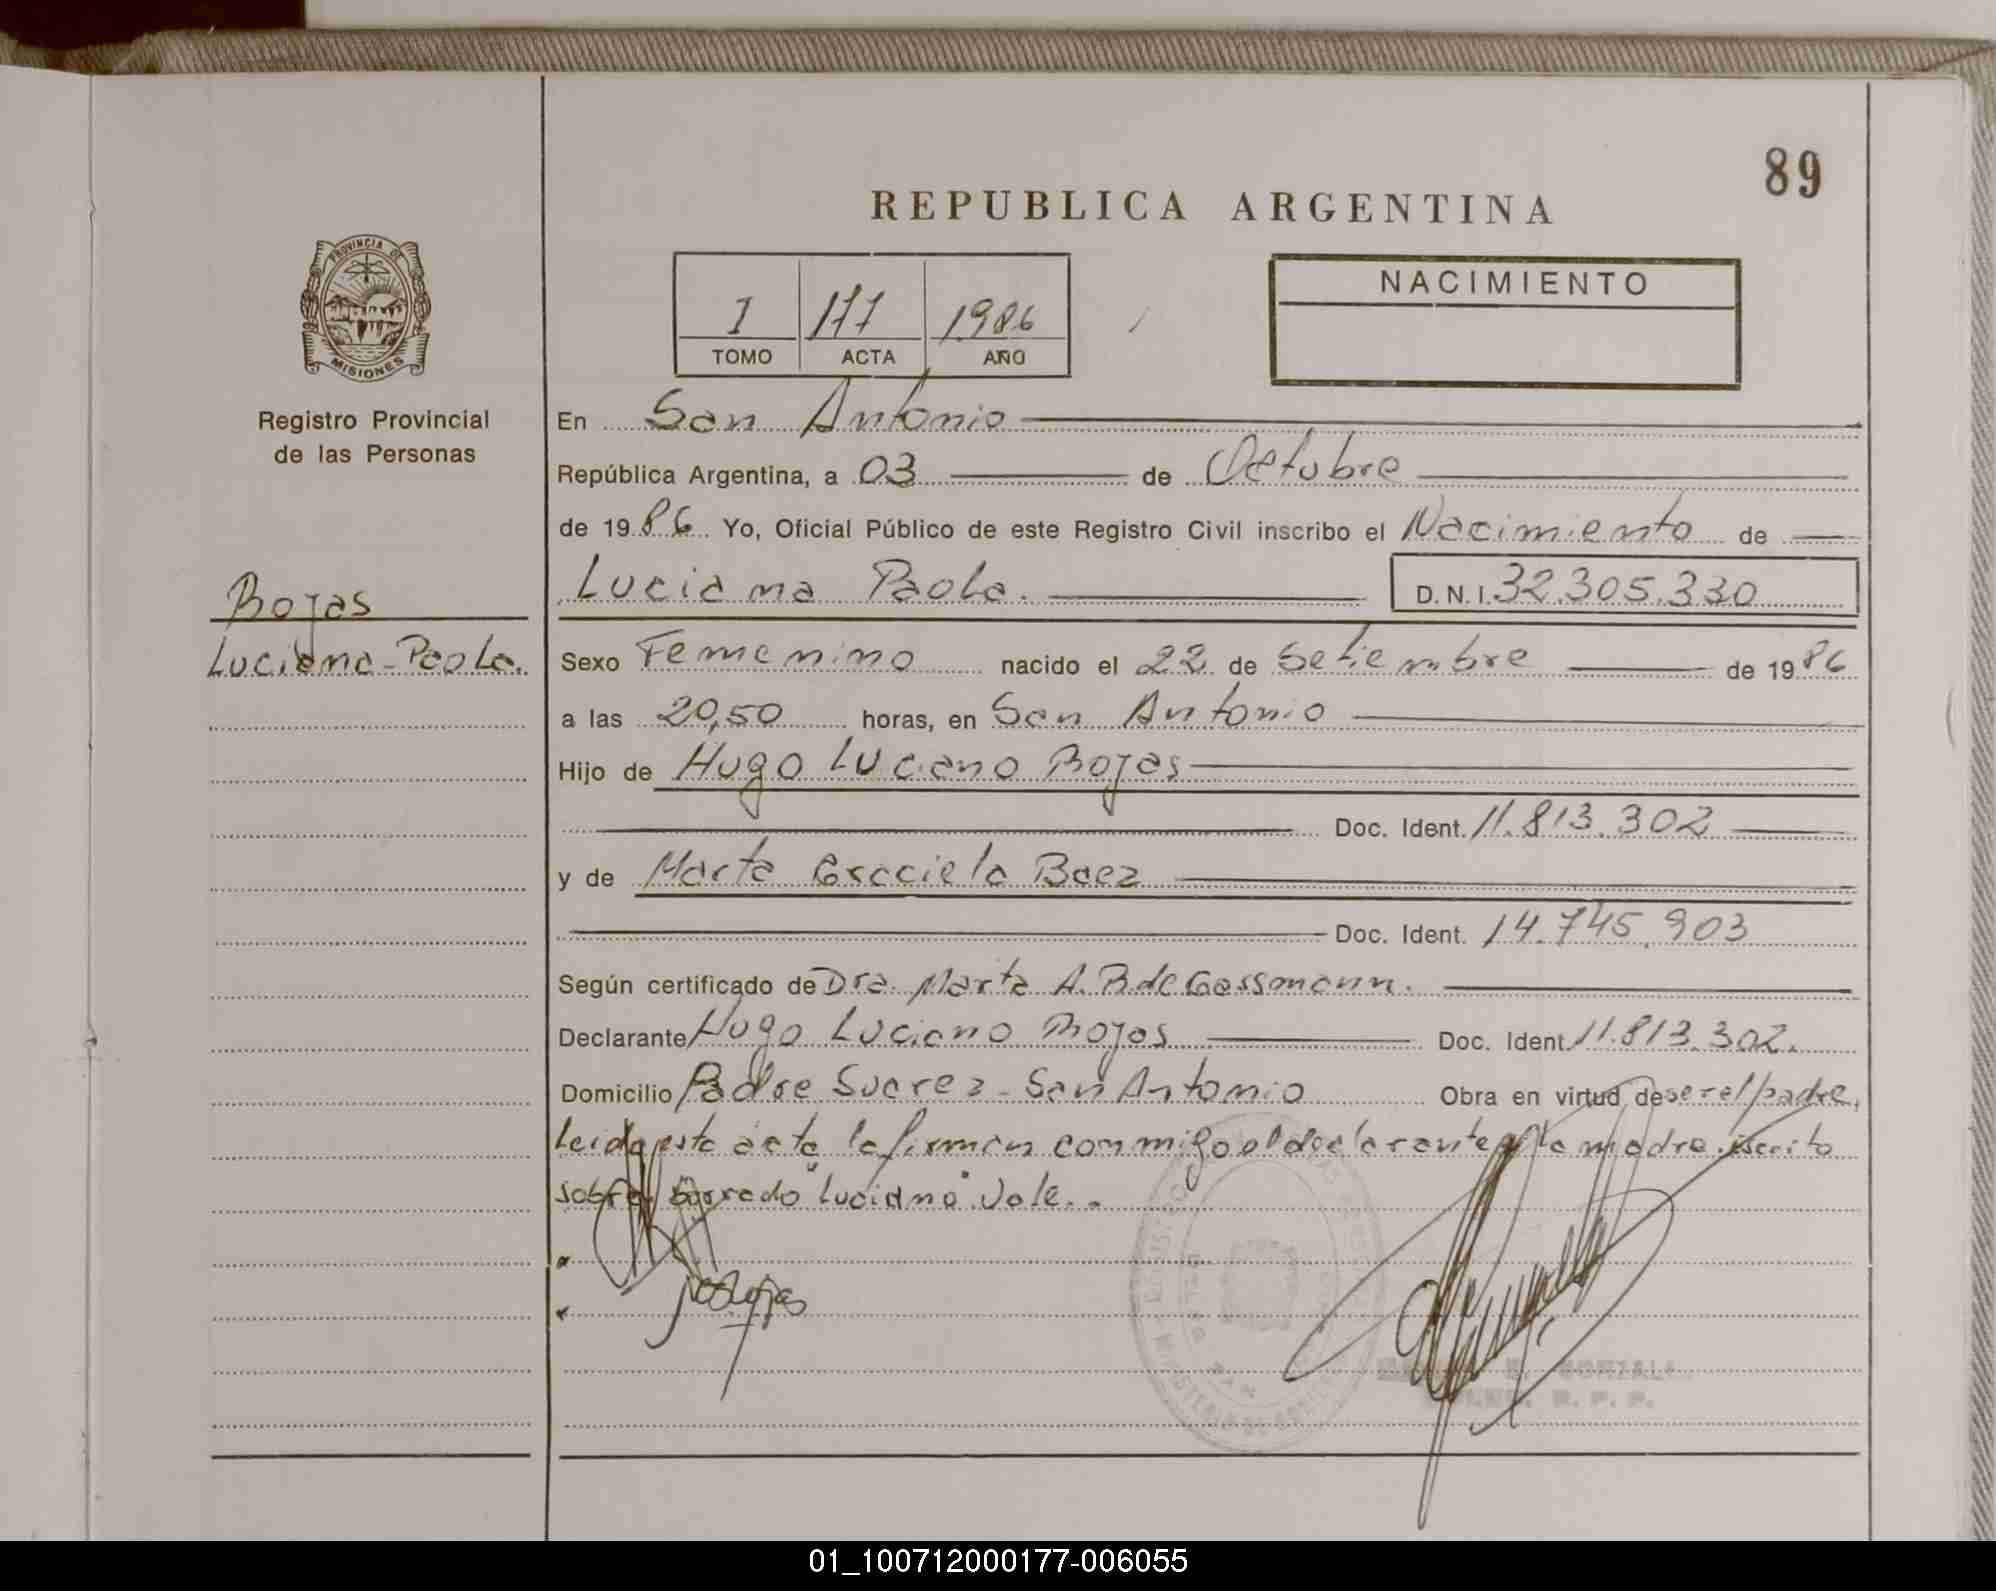 89
REPUBLICA ARGENTINA
PROVINCIA DE
MISIONES
Registro Provincial
de las Personas
I 177 1.986
TOMO ACTA AÑO
NACIMIENTO
En San Antonio
República Argentina, a 03 de Octubre
de 1986 Yo, Oficial Público de este Registro Civil inscribo el Nacimiento de
Luciana Paola. D.N.I. 32.305.330
Rojas
Luciana-Paola.
Sexo Femenino nacido el 22 de Setiembre de 1986
a las 20,50 horas, en San Antonio
Hijo de Hugo Luciano Rojas
Doc. Ident. 11.813.302
y de Marta Graciela Baez
Doc. Ident. 14.745.903
Según certificado de Dra. Marta A. B. de Gassmann.
Declarante Hugo Luciano Rojas Doc. Ident. 11.813.302.
Domicilio Padre Suarez - San Antonio Obra en virtud de ser el padre,
leida esta acta la firman conmigo el declarante y la madre. escrito
sobre borrado "Luciano". Vale.-
R. P. P.
01_100712000177-006055